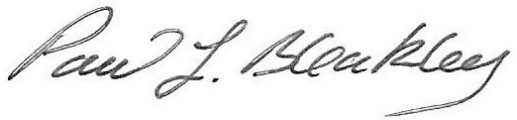 Paul L. Bleakley